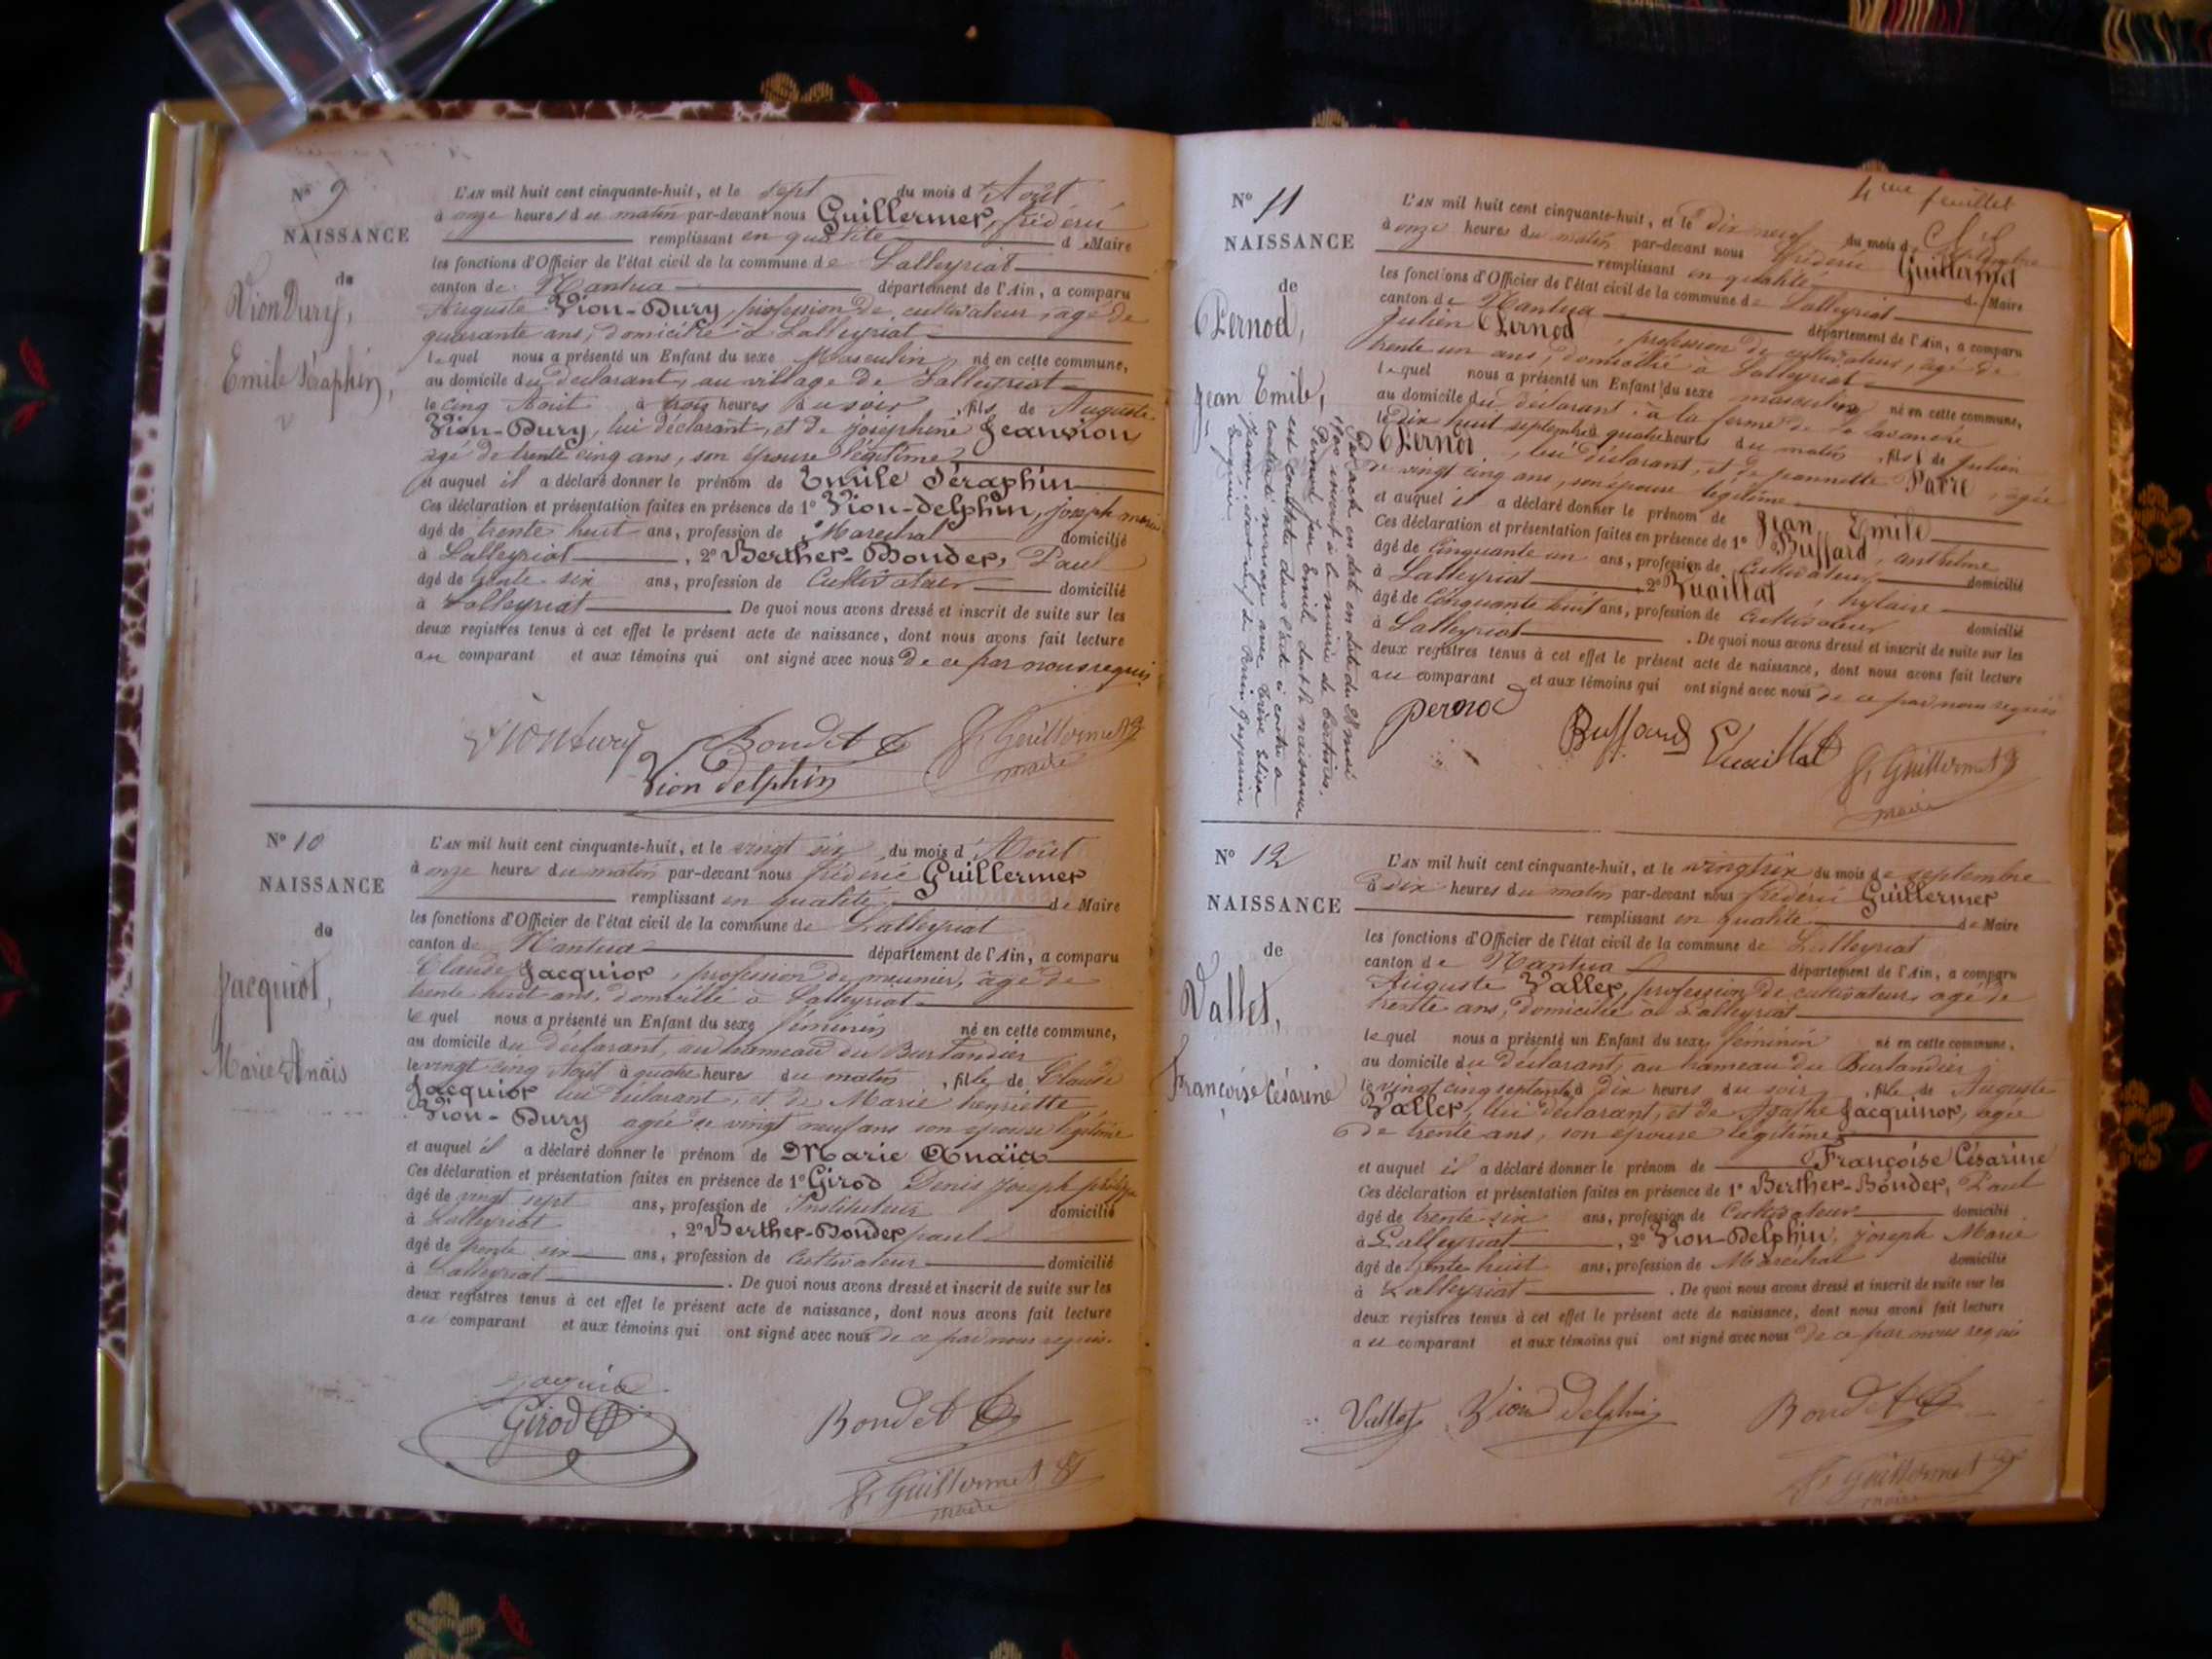 N° 9
NAISSANCE
de
Vion Dury,
Emile Séraphin,
L'AN mil huit cent cinquante-huit, et le sept du mois d'Août
à onze heures du matin par-devant nous Guillermet, frédéric
remplissant en qualité de Maire
les fonctions d'Officier de l'état civil de la commune de Lalleyriat
canton de Nantua département de l'Ain, a comparu
Auguste Vion-Dury, profession de cultivateur, agé de
quarante ans, domicilié à Lalleyriat
lequel nous a présenté un Enfant du sexe Masculin, né en cette commune,
au domicile du déclarant, au village de Lalleyriat
le cinq Août à trois heures du soir, fils de Auguste
Vion-Dury, lui déclarant, et de Joséphine Jeanvion
agé de trente cinq ans, son épouse légitime
et auquel il a déclaré donner le prénom de Emile Séraphin
Ces déclaration et présentation faites en présence de 1° Vion-delphin, joseph marie
âgé de trente huit ans, profession de Marechal domicilié
à Lalleyriat, 2° Berthet-Bondet, Paul
âgé de trente six ans, profession de Cultivateur domicilié
à Lalleyriat De quoi nous avons dressé et inscrit de suite sur les
deux registres tenus à cet effet le présent acte de naissance, dont nous avons fait lecture
au comparant et aux témoins qui ont signé avec nous de ce par nous requis
Viondury Bondet F. Guillermet
Vion delphin maire
N° 10
NAISSANCE
de
Jacquiot,
Marie Anaïs
L'AN mil huit cent cinquante-huit, et le vingt six du mois d'Août
à onze heures du matin par-devant nous frédéric Guillermet
remplissant en qualité de Maire
les fonctions d'Officier de l'état civil de la commune de Lalleyriat
canton de Nantua département de l'Ain, a comparu
Claude Jacquiot, profession de meunier, agé de
trente huit ans, domicilié à Lalleyriat
lequel nous a présenté un Enfant du sexe féminin né en cette commune,
au domicile du déclarant, au hameau du Burlandier
le vingt cinq Août à quatre heures du matin, fille de Claude
Jacquiot lui déclarant, et de Marie henriette
Vion-Dury agée de vingt neuf ans son epouse légitime
et auquel il a déclaré donner le prénom de Marie Anaïs
Ces déclaration et présentation faites en présence de 1° Girod Denis Joseph philippe
âgé de vingt sept ans, profession de Instituteur domicilié
à Lalleyriat, 2° Berthet-Bondet paul
âgé de trente six ans, profession de Cultivateur domicilié
à Lalleyriat. De quoi nous avons dressé et inscrit de suite sur les
deux registres tenus à cet effet le présent acte de naissance, dont nous avons fait lecture
au comparant et aux témoins qui ont signé avec nous de ce par nous requis.
Girod Bondet
F. Guillermet
maire
4me feuillet
N° 11
NAISSANCE
de
Pernod,
Jean Emile,
L'AN mil huit cent cinquante-huit, et le Dix neuf du mois de Septembre
à onze heures du matin par-devant nous Frédéric Guillermet
remplissant en qualité de Maire
les fonctions d'Officier de l'état civil de la commune de Lalleyriat
canton de Nantua département de l'Ain, a comparu
Julien Pernod, profession de cultivateur, agé de
trente un ans, domicilié à Lalleyriat
lequel nous a présenté un Enfant du sexe masculin né en cette commune,
au domicile du déclarant, à la ferme de
le Dix huit septembre à quatre heures du matin, fils de Julien
Pernod, lui déclarant, et de jeannette Favre agée
de vingt cinq ans, son epouse légitime
et auquel il a déclaré donner le prénom de Jean Emile
Ces déclaration et présentation faites en présence de 1° Buffard, anthelme
âgé de Cinquante un ans, profession de Cultivateur domicilié
à Lalleyriat, 2° Vuaillat, hylaire
âgé de Cinquante huit ans, profession de Cultivateur domicilié
à Lalleyriat. De quoi nous avons dressé et inscrit de suite sur les
deux registres tenus à cet effet le présent acte de naissance, dont nous avons fait lecture
au comparant et aux témoins qui ont signé avec nous de ce par nous requis
Par acte en date en date du 28 mai
1900 inscrit à la mairie de
Pernod Jean Emile dont la naissance
est constatée dans l'acte ci contre a
contracté mariage avec Elisa
pernod Buffard Vuaillat F. Guillermet
maire
N° 12
NAISSANCE
de
Vallet,
Françoise Césarine
L'AN mil huit cent cinquante-huit, et le vingt six du mois de septembre
à dix heures du matin par-devant nous frédéric Guillermet
remplissant en qualité de Maire
les fonctions d'Officier de l'état civil de la commune de Lalleyriat
canton de Nantua département de l'Ain, a comparu
Auguste Vallet, profession de cultivateur, agé de
trente ans, domicilié à Lalleyriat
lequel nous a présenté un Enfant du sexe féminin né en cette commune,
au domicile du déclarant, au hameau du Burlandier
le vingt cinq septembre à dix heures du soir, fille de Auguste
Vallet, lui déclarant, et de Agathe Jacquinot, agée
de trente ans, son epouse legitime
et auquel il a déclaré donner le prénom de Françoise Césarine
Ces déclaration et présentation faites en présence de 1° Berthet-Bondet, Paul
âgé de trente six ans, profession de Cultivateur domicilié
à Lalleyriat, 2° Vion-Delphin, Joseph Marie
âgé de trente huit ans, profession de Maréchal domicilié
à Lalleyriat. De quoi nous avons dressé et inscrit de suite sur les
deux registres tenus à cet effet le présent acte de naissance, dont nous avons fait lecture
au comparant et aux témoins qui ont signé avec nous de ce par nous requis
Vallet Vion Delphin Bondet
F. Guillermet
maire